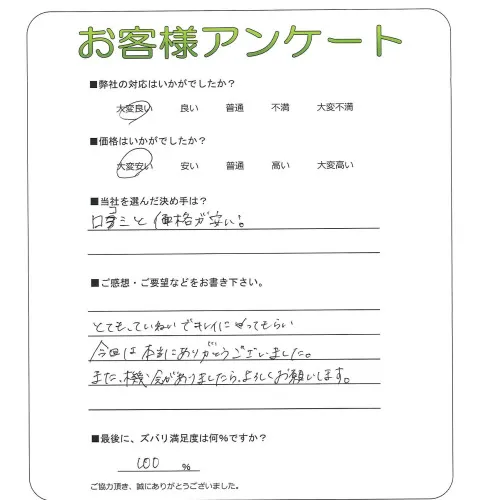 お客様アンケート
■弊社の対応はいかがでしたか？
大変良い 良い 普通 不満 大変不満
■価格はいかがでしたか？
大変安い 安い 普通 高い 大変高い
■当社を選んだ決め手は？
口コミと価格が安い。
■ご感想・ご要望などをお書き下さい。
とても、ていねいでキレイにやってもらい
今回は本当にありがとうございました。
また、機会がありましたら、よろしくお願いします。
■最後に、ズバリ満足度は何％ですか？
100 %
ご協力頂き、誠にありがとうございました。